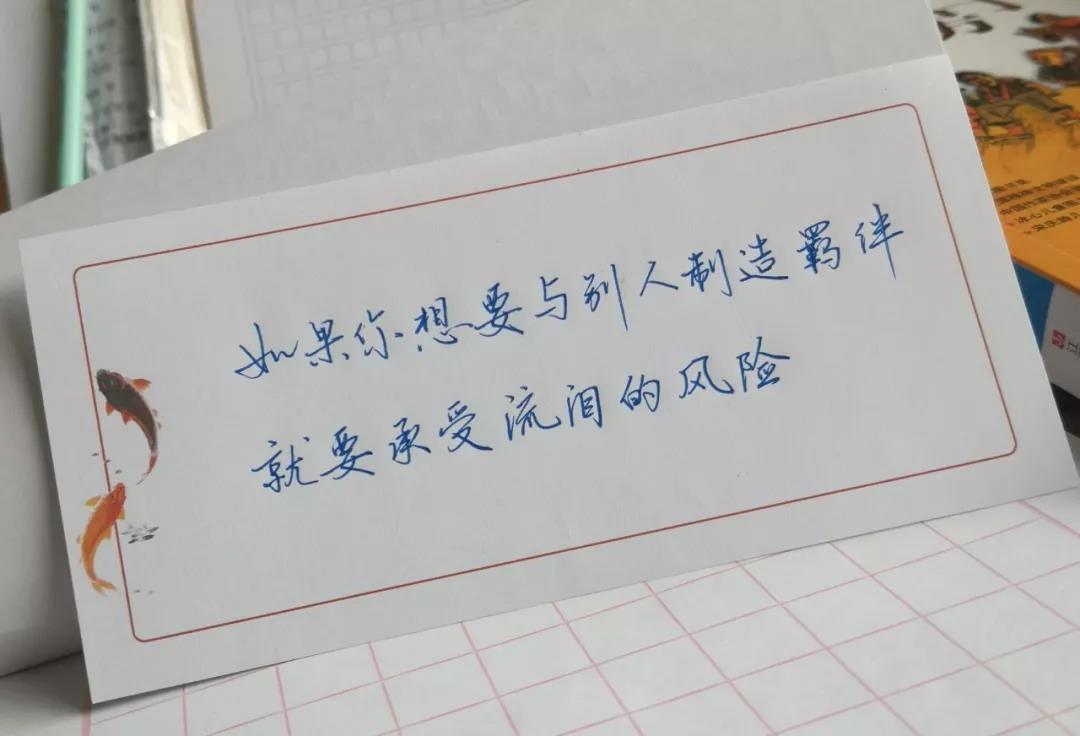 如果你想要与别人制造羁绊
就要承受流泪的风险